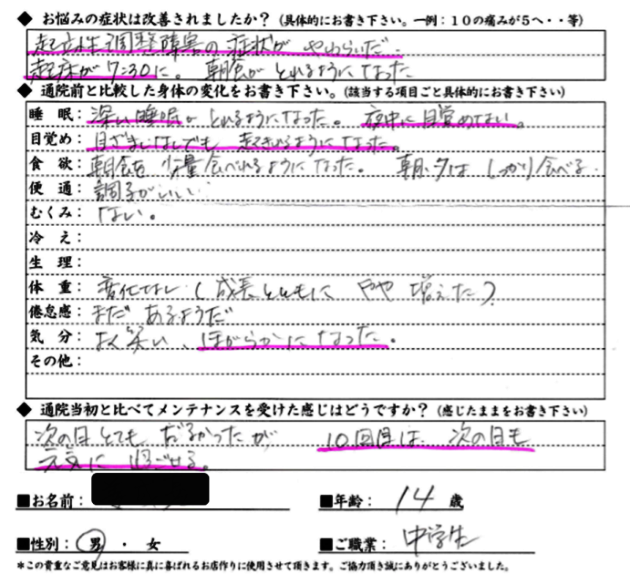 ◆ お悩みの症状は改善されましたか？（具体的にお書き下さい。一例：１０の痛みが５へ・・等）
起立性調整障害の症状が やわらいだ。
起床が7:30に。 朝食が とれるようになった
◆ 通院前と比較した身体の変化をお書き下さい。（該当する項目ごと具体的にお書き下さい）
睡 眠： 深い睡眠が とれるようになった。 夜中に目覚めない。
目覚め： 目ざましなしでも 起きれるようになった。
食 欲： 朝食を 少量食べれるようになった。 朝・夕は しっかり食べる
便 通： 調子がいい・・
むくみ： ない。
冷 え：
生 理：
体 重： 変化なし（成長とともに やや 増えた）
倦怠感： まだ あるようだ
気 分： よく笑い、ほがらかになった。
その他：
◆ 通院当初と比べてメンテナンスを受けた感じはどうですか？（感じたままをお書き下さい）
次の日 とても だるかったが 10回目は 次の日も
元気に 過ごせる。
■お名前： ■年齢： 14 歳
■性別：男 ・ 女 ■ご職業： 中学生
＊この貴重なご意見はお客様に真に喜ばれるお店作りに使用させて頂きます。ご協力頂き誠にありがとうございました。